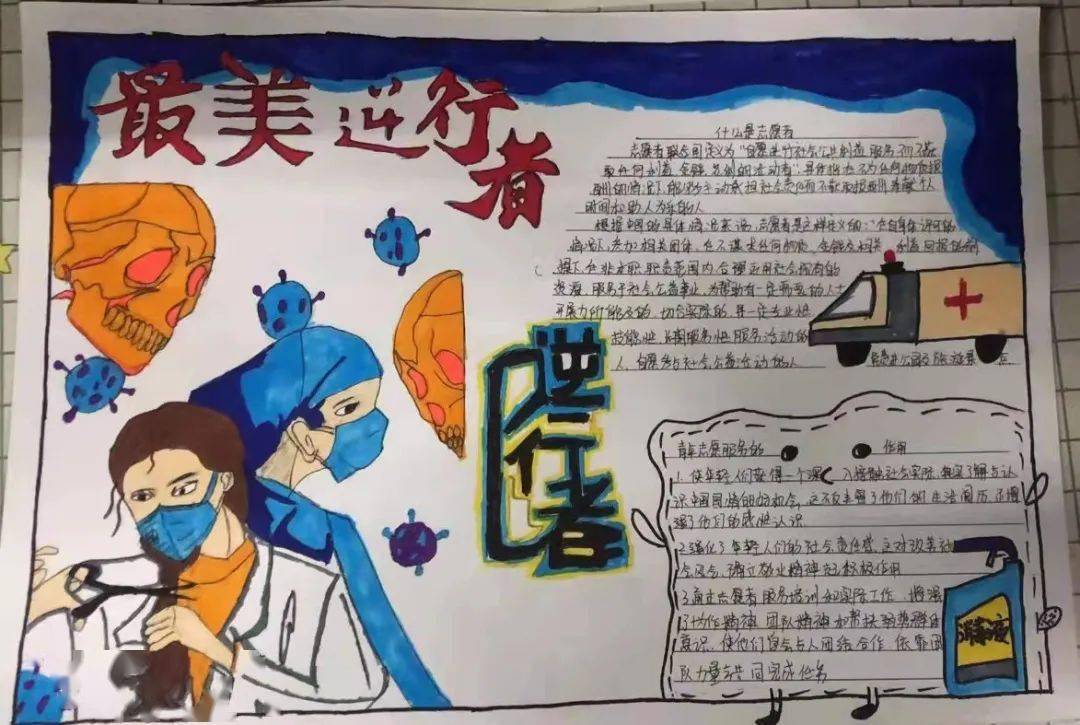 最美逆行者
什么是志愿者
志愿者联合国定义为“自愿进行社会公共利益服务而不获
取任何利益、金钱、名利的活动者”具体指在不为任何物质报
酬的情况下,能够主动承担社会责任而不获取报酬,奉献个人
时间和助人为乐的人
根据中国的具体情况来说,志愿者是这样定义的:“在自身条件许可的
情况下,参加相关团体,在不谋求任何物质、金钱及相关利益回报的前
提下,在非本职职责范围内,合理运用社会现有的
资源,服务于社会公益事业,为帮助有一定需要的人士
开展力所能及的、切合实际的,具一定专业性
技能性、长期服务性服务活动的
人,自愿参与社会公益活动的人
逆行者
青年志愿服务的作用
1.使年轻人们获得一个深入接触社会实际,真正了解与认
识中国国情的好机会,这不仅丰富了他们的生活阅历,还增
强了他们的感性认识
2.强化了年轻人们的社会责任感,这对改善社
会风气,确立敬业精神起积极作用
3.通过志愿者服务培训和实际工作,增强
了协作精神、团队精神和帮扶弱势群体
意识,使他们学会与人团结合作,依靠团
队力量共同完成任务
消毒液